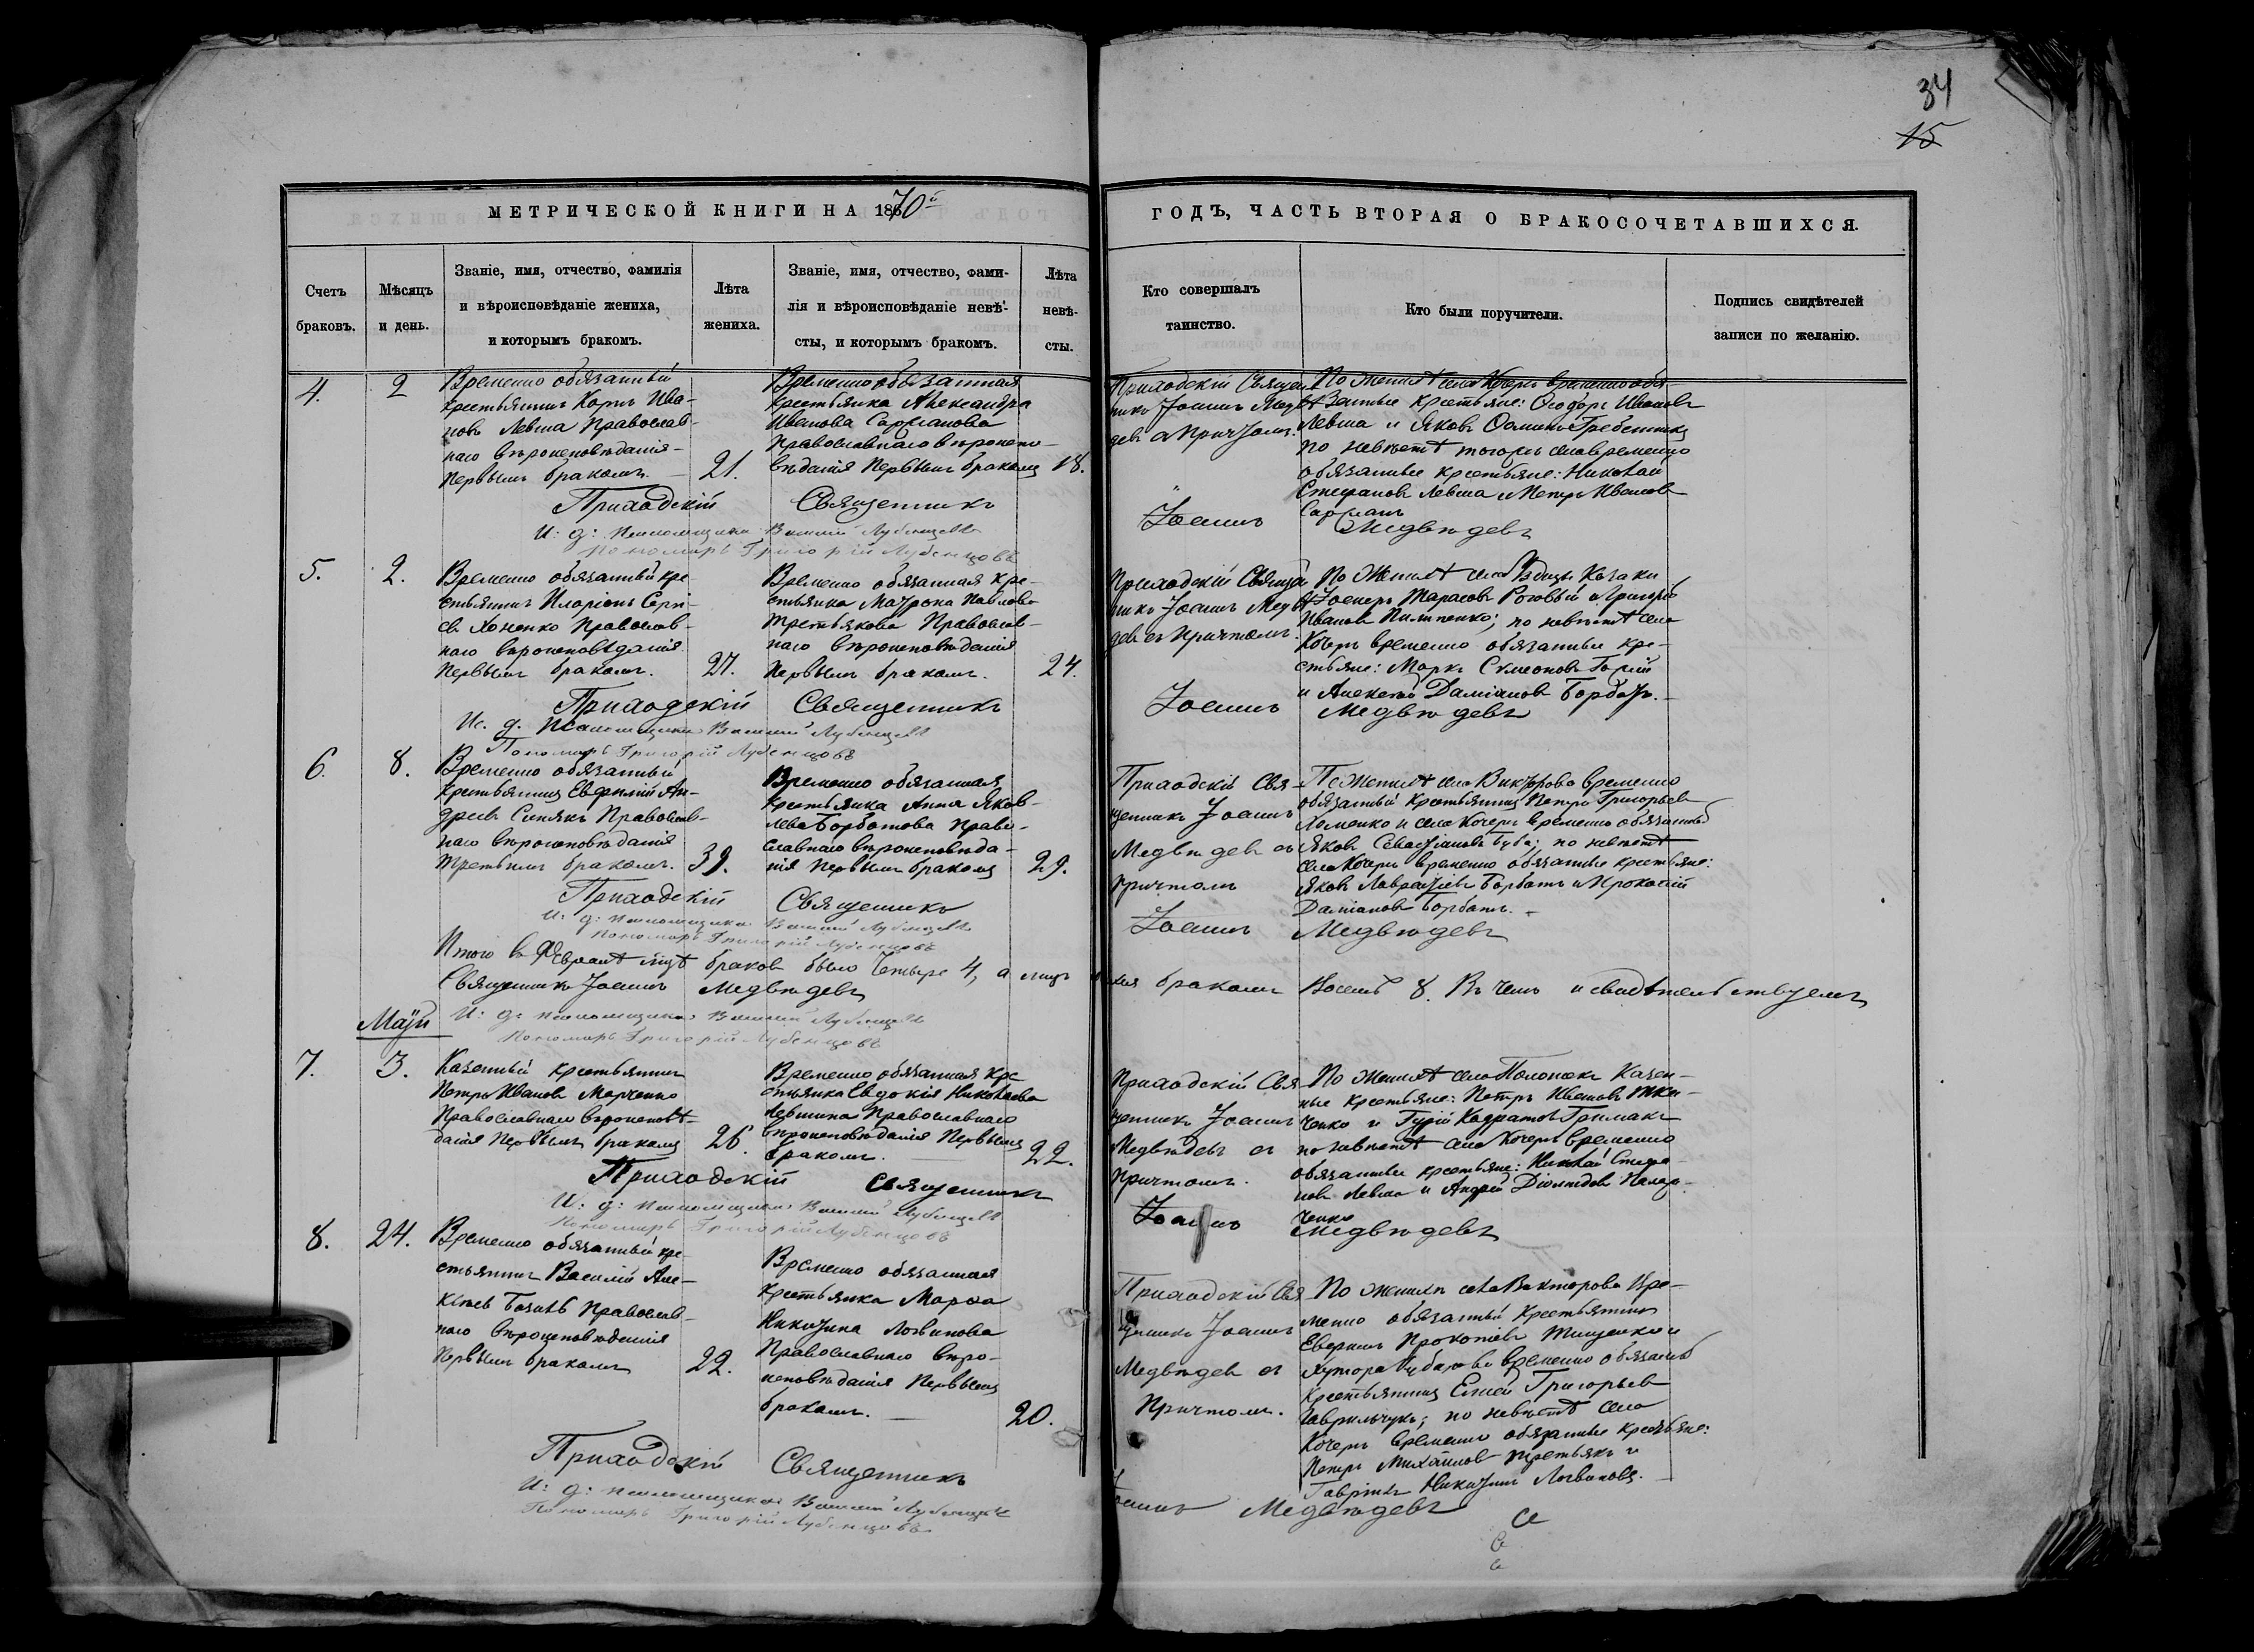 34
15
МЕТРИЧЕСКОЙ КНИГИ НА 1870й
ГОДЪ, ЧАСТЬ ВТОРАЯ О БРАКОСОЧЕТАВШИХСЯ.
Счетъ
браковъ.
Мѣсяцъ
и день.
Званіе, имя, отчество, фамилія
и вѣроисповѣданіе жениха,
и которымъ бракомъ.
Лѣта
жениха.
Званіе, имя, отчество, фами-
лія и вѣроисповѣданіе невѣ-
сты, и которымъ бракомъ.
Лѣта
невѣ-
сты.
Кто совершалъ
таинство.
Кто были поручители.
Подпись свидѣтелей
записи по желанію.
4.
2
Временно обязанный
крестьянинъ Карпъ Ива-
новъ Левша Православ-
наго вѣроисповѣданія
первымъ бракомъ.
21.
Временно обязанная
крестьянка Александра
Иванова
православнаго вѣроиспо-
вѣданія первымъ бракомъ
18.
Приходскій Священ
никъ Іоаннъ Медвѣ
девъ с причтомъ.
По женихѣ села Кочеръ временно обя-
занные крестьяне: Ѳеодоръ Ивановъ
Левша и Яковъ Гребенникъ
по невѣстѣ тогожъ села временно
обязанные крестьяне: Николай
Стефановъ Левша и Петръ Ивановъ
Приходскій Священникъ
Іоаннъ Медвѣдевъ
И: д: псаломщика Василій Лубенцовъ
Пономарь Григорій Лубенцовъ
5.
2.
Временно обязанный кре
стьянинъ Иларіонъ Серги-
евъ Хоменко Православ-
наго вѣроисповѣданія
первымъ бракомъ.
27.
Временно обязанная кре-
стьянка Матрона Павлова
Третьякова Православ-
наго вѣроисповѣданія
первымъ бракомъ.
24.
Приходскій Священ
никъ Іоаннъ Медвѣ
девъ съ причтомъ.
По женихѣ села Козаки
Тарасовъ Роговый и Григорій
Ивановъ Пилипенко; по невѣстѣ села
Кочеръ временно обязанные кре-
стьяне: Маркъ Сѵмеоновъ
и Алексѣй Даміановъ Борбатъ.
Приходскій Священникъ
Іоаннъ Медвѣдевъ
Ис. д. Псаломщика Василій Лубенцовъ
Пономарь Григорій Лубенцовъ
6.
8.
Временно обязанный
крестьянинъ Евфимій Ан-
дреевъ Синякъ Православ-
наго вѣроисповѣданія
третьимъ бракомъ.
39.
Временно обязанная
крестьянка Анна Яков-
лева Борботова право-
славнаго вѣроисповѣда-
нія первымъ бракомъ
29.
Приходскій Свя-
щенникъ Іоаннъ
Медвѣдевъ съ
причтомъ
По женихѣ села Викторова временно
обязанный крестьянинъ Петръ Григорьевъ
Хоменко и села Кочеръ временно обязанный
Яковъ Севастіановъ; по невѣстѣ
села Кочеръ временно обязанные крестьяне:
Яковъ Лаврентіевъ Борбатъ и Прокопій
Даміановъ Борбатъ.
Приходскій Священникъ
Іоаннъ Медвѣдевъ
И: д: псаломщика Василій Лубенцовъ
Пономарь Григорій Лубенцовъ
Итого въ Февралѣ м҃цѣ браковъ было четыре 4, а лицъ
браками Восемь 8. Въ чемъ и свидѣтельствуемъ
Священникъ Іоаннъ Медвѣдевъ
И: д: псаломщика Василій Лубенцовъ
Пономарь Григорій Лубенцовъ
Маій
7.
3.
Казенный крестьянинъ
Петръ Ивановъ Марченко
Православнаго вѣроисповѣ-
данія первымъ бракомъ
26.
Временно обязанная кре
стьянка Евдокія Николаева
Левшина Православнаго
вѣроисповѣданія первымъ
бракомъ.
22.
Приходскій Свя-
щенникъ Іоаннъ
Медвѣдевъ съ
причтомъ.
По женихѣ села Полонокъ Казен-
ные крестьяне: Петръ Ивановъ
ченко и Гурій
по невѣстѣ села Кочеръ временно
обязанные крестьяне: Николай Стефа-
новъ Левша и Андрей Діомидовъ
ченко
Приходскій Священникъ
Іоаннъ Медвѣдевъ
И: д: псаломщика Василій Лубенцовъ
Пономарь Григорій Лубенцовъ
8.
24.
Временно обязанный кре-
стьянинъ Василій Але-
ксѣевъ Православ-
наго вѣроисповѣданія
первымъ бракомъ
22.
Временно обязанная
крестьянка Марѳа
Никитина Логвинова
Православнаго вѣро-
исповѣданія первымъ
бракомъ.
20.
Приходскій Свя-
щенникъ Іоаннъ
Медвѣдевъ съ
Причтомъ.
По женихѣ села Викторова Вре-
менно обязанный крестьянинъ
Прокопіевъ Тищенко и
хутора временно обязанный
крестьянинъ Григорьевъ
Гаврильчукъ; по невѣстѣ села
Кочеръ временно обязанные крестьяне:
Петръ Михайловъ Третьякъ и
Гавріилъ Никитинъ Логвиновъ.
Приходскій Священникъ
Іоаннъ Медвѣдевъ
И: д: псаломщика Василій Лубенцовъ
Пономарь Григорій Лубенцовъ